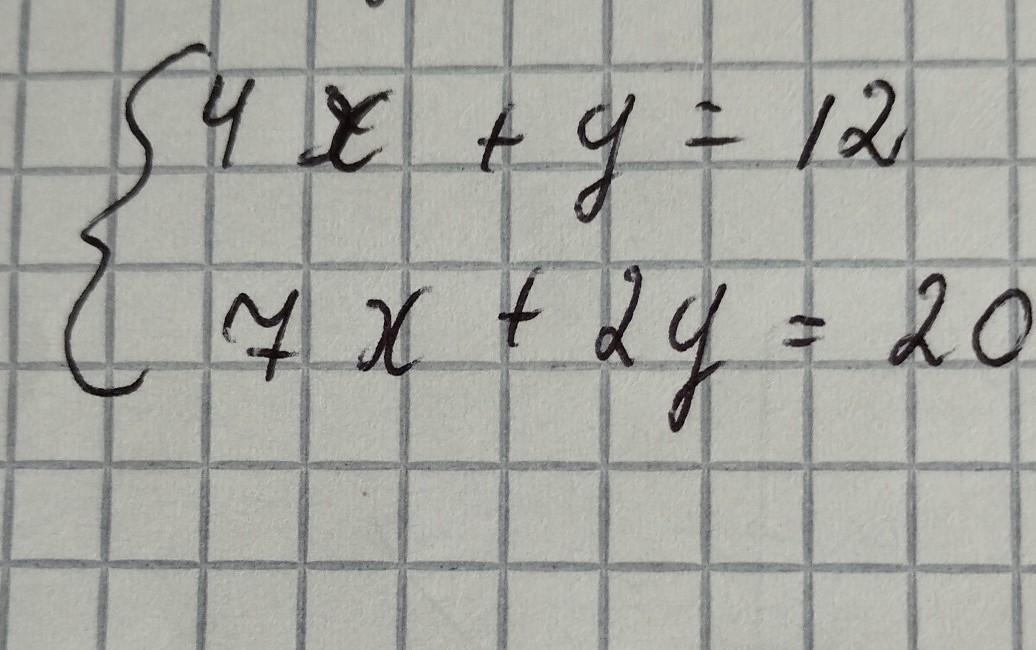 4x + y = 12
7x + 2y = 20